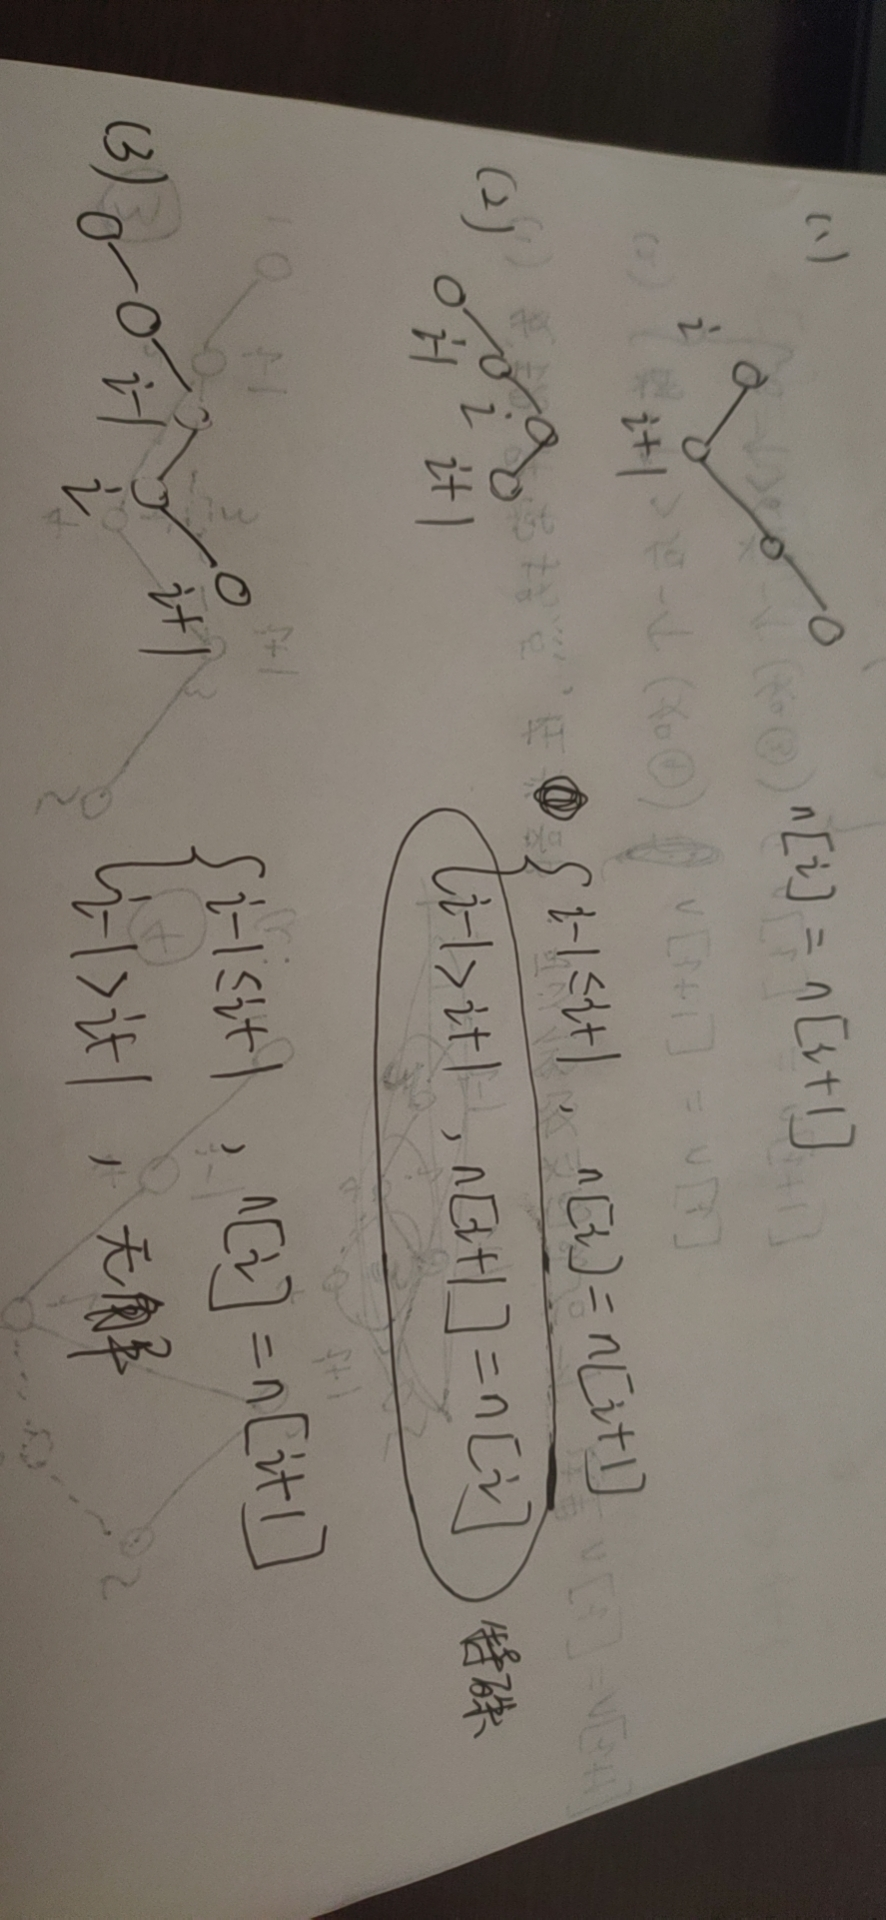 (1)
i
i+1
n[i]=n[i+1]
(2)
i-1
i
i+1
{ i-1≤i+1, n[i]=n[i+1]
i-1>i+1, n[i+1]=n[i]
特殊
(3)
i-1
i
i+1
{ i-1≤i+1, n[i]=n[i+1]
i-1>i+1, 无解